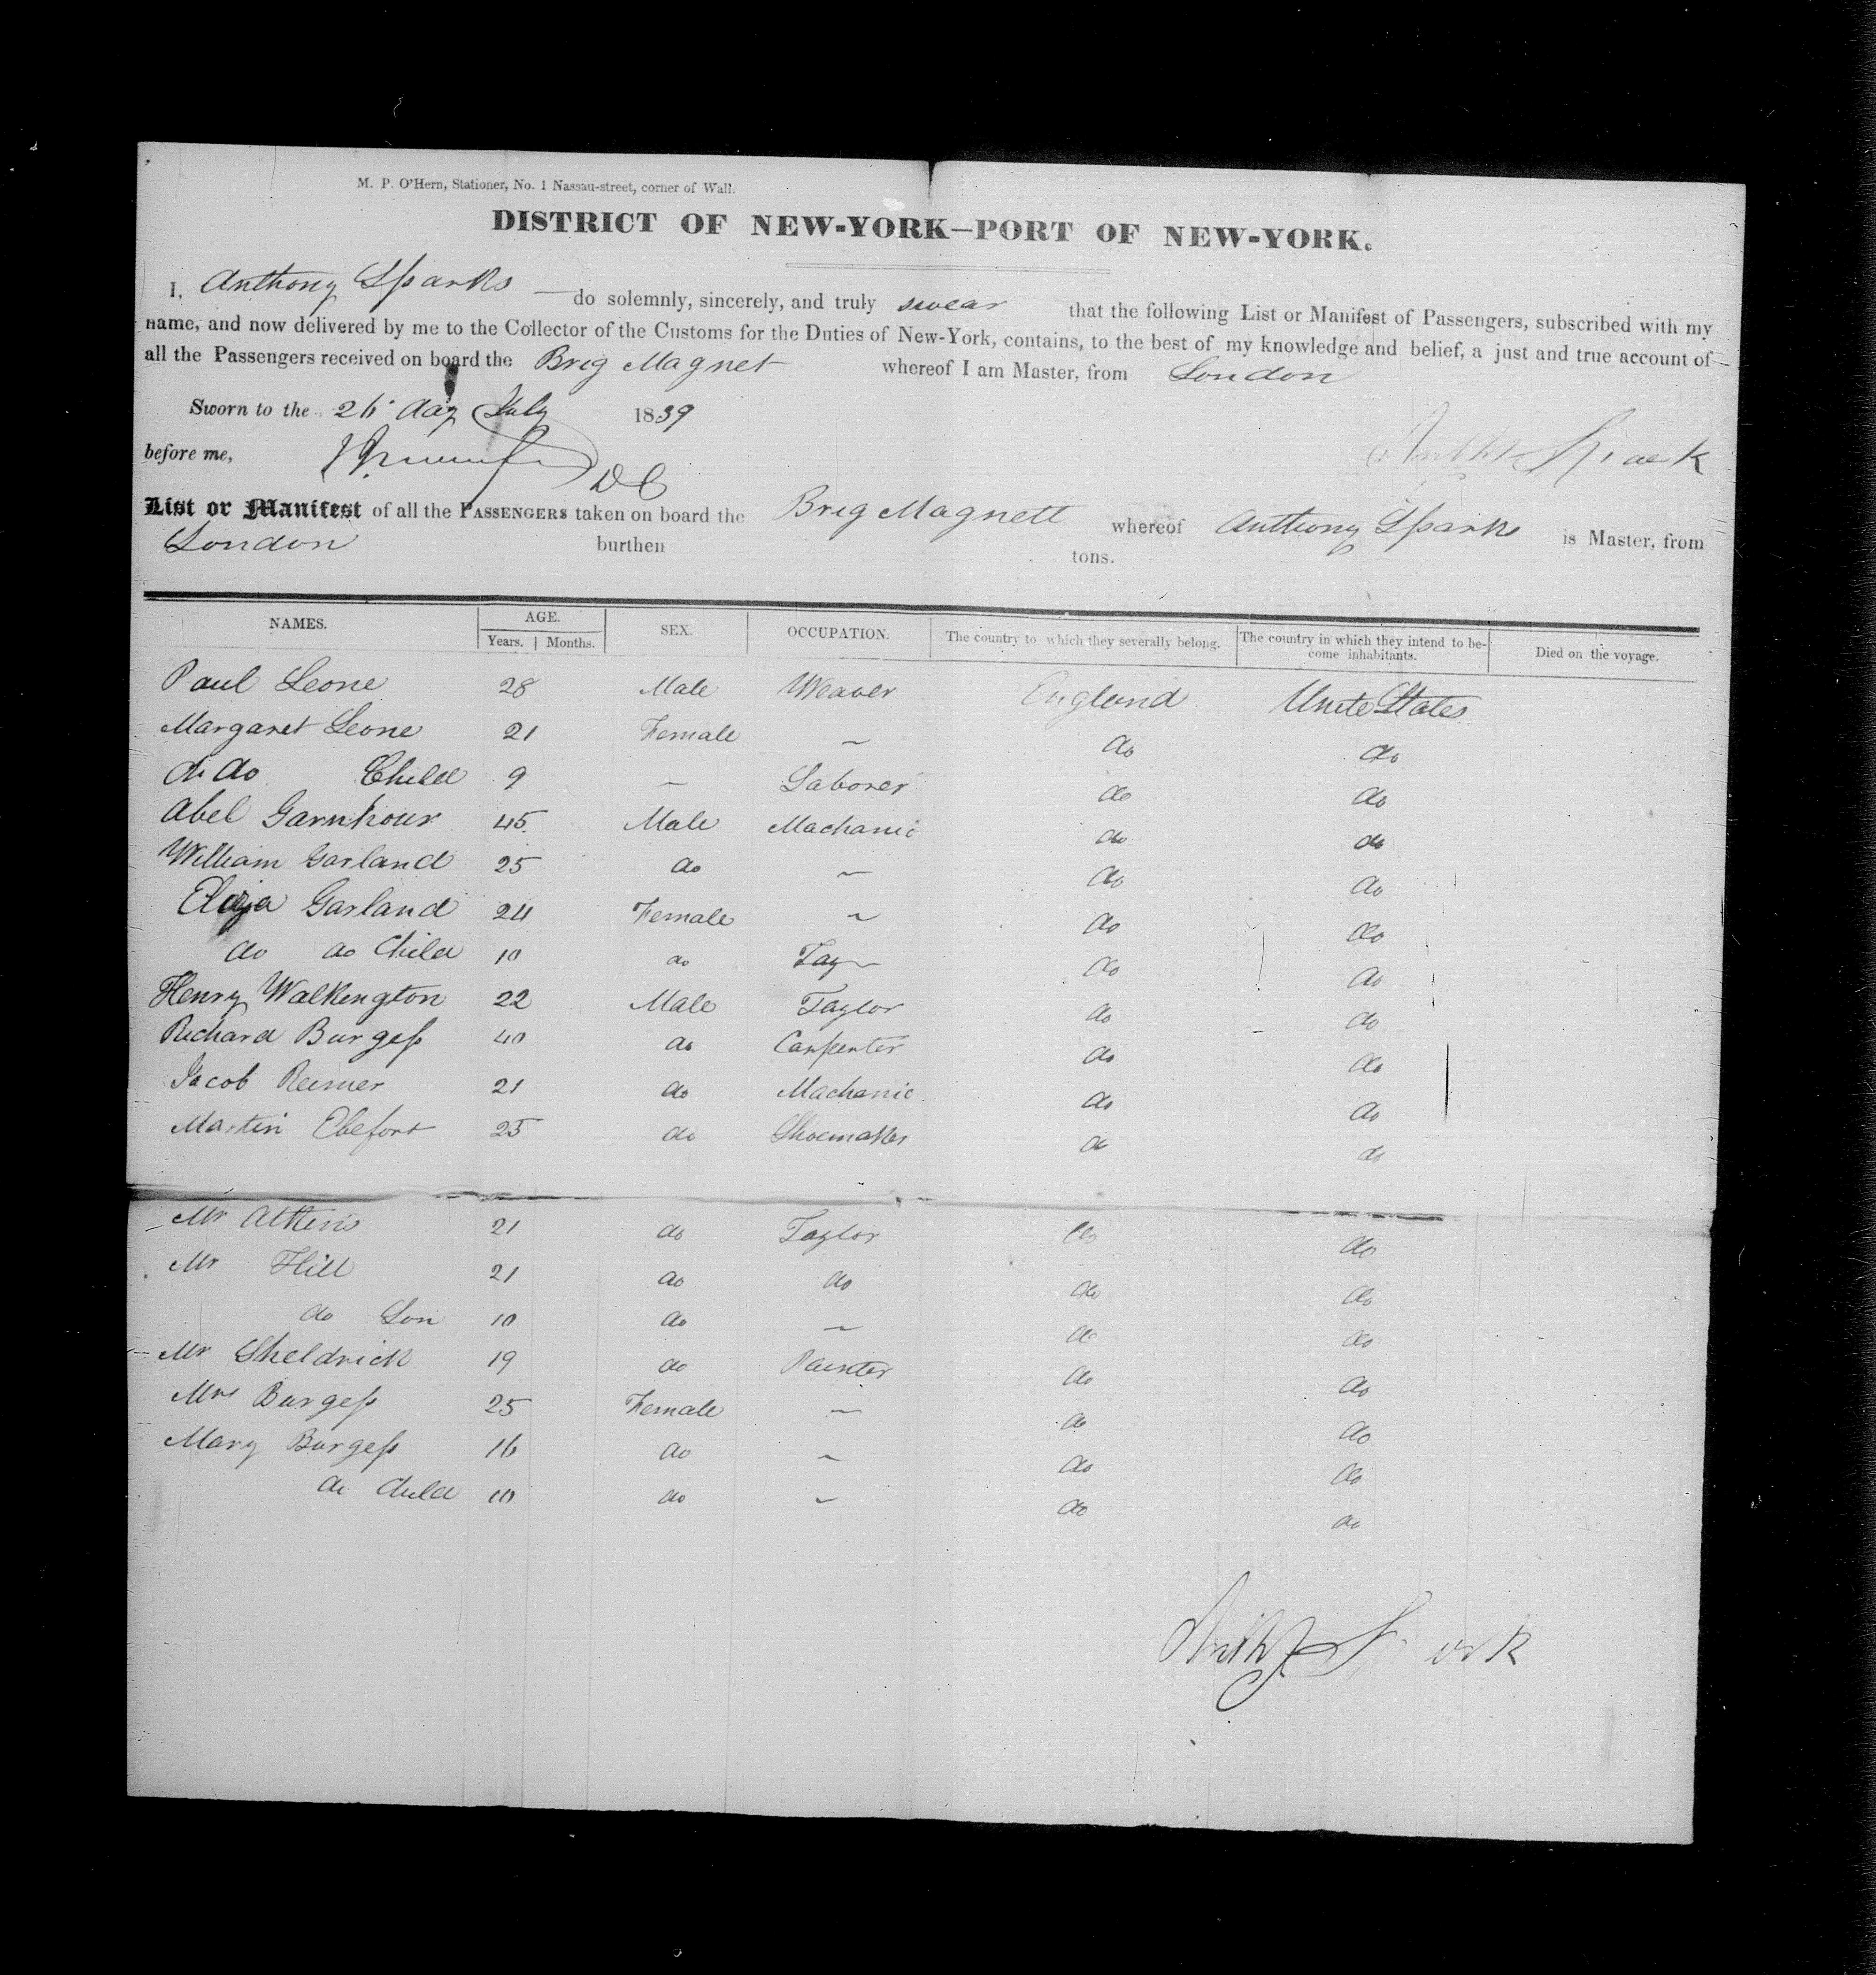 M. P. O'Hern, Stationer, No. 1 Nassau-street, corner of Wall.
DISTRICT OF NEW-YORK—PORT OF NEW-YORK.
I, Anthony Sparks — do solemnly, sincerely, and truly swear that the following List or Manifest of Passengers, subscribed with my
name, and now delivered by me to the Collector of the Customs for the Duties of New-York, contains, to the best of my knowledge and belief, a just and true account of
all the Passengers received on board the Brig Magnet whereof I am Master, from London
Sworn to the 26 day July 1839
before me,
DC
List or Manifest of all the PASSENGERS taken on board the Brig Magnett whereof Anthony Sparks is Master, from
London burthen tons.
NAMES. AGE. SEX. OCCUPATION. The country to which they severally belong. The country in which they intend to be-
Years. Months. come inhabitants. Died on the voyage.
Paul Leone 28 Male Weaver England Unite States
Margaret Leone 21 Female — do do
do do Child 9 — Laborer do do
Abel Garnhour 45 Male Machanic do do
William Garland 25 do — do do
Eliza Garland 24 Female — do do
do do Child 10 do Tay do do
Henry Walkington 22 Male Taylor do do
Richard Burgess 40 do Carpenter do do
Jacob Reimer 21 do Machanic do do
Martin Ebefort 25 do Shoemaker do do
Mr Atkins 21 do Taylor do do
Mr Hill 21 do do do do
do Son 10 do — do do
Mr Sheldrick 19 do Painter do do
Mrs Burgess 25 Female — do do
Mary Burgess 16 do — do do
do Child 10 do — do do